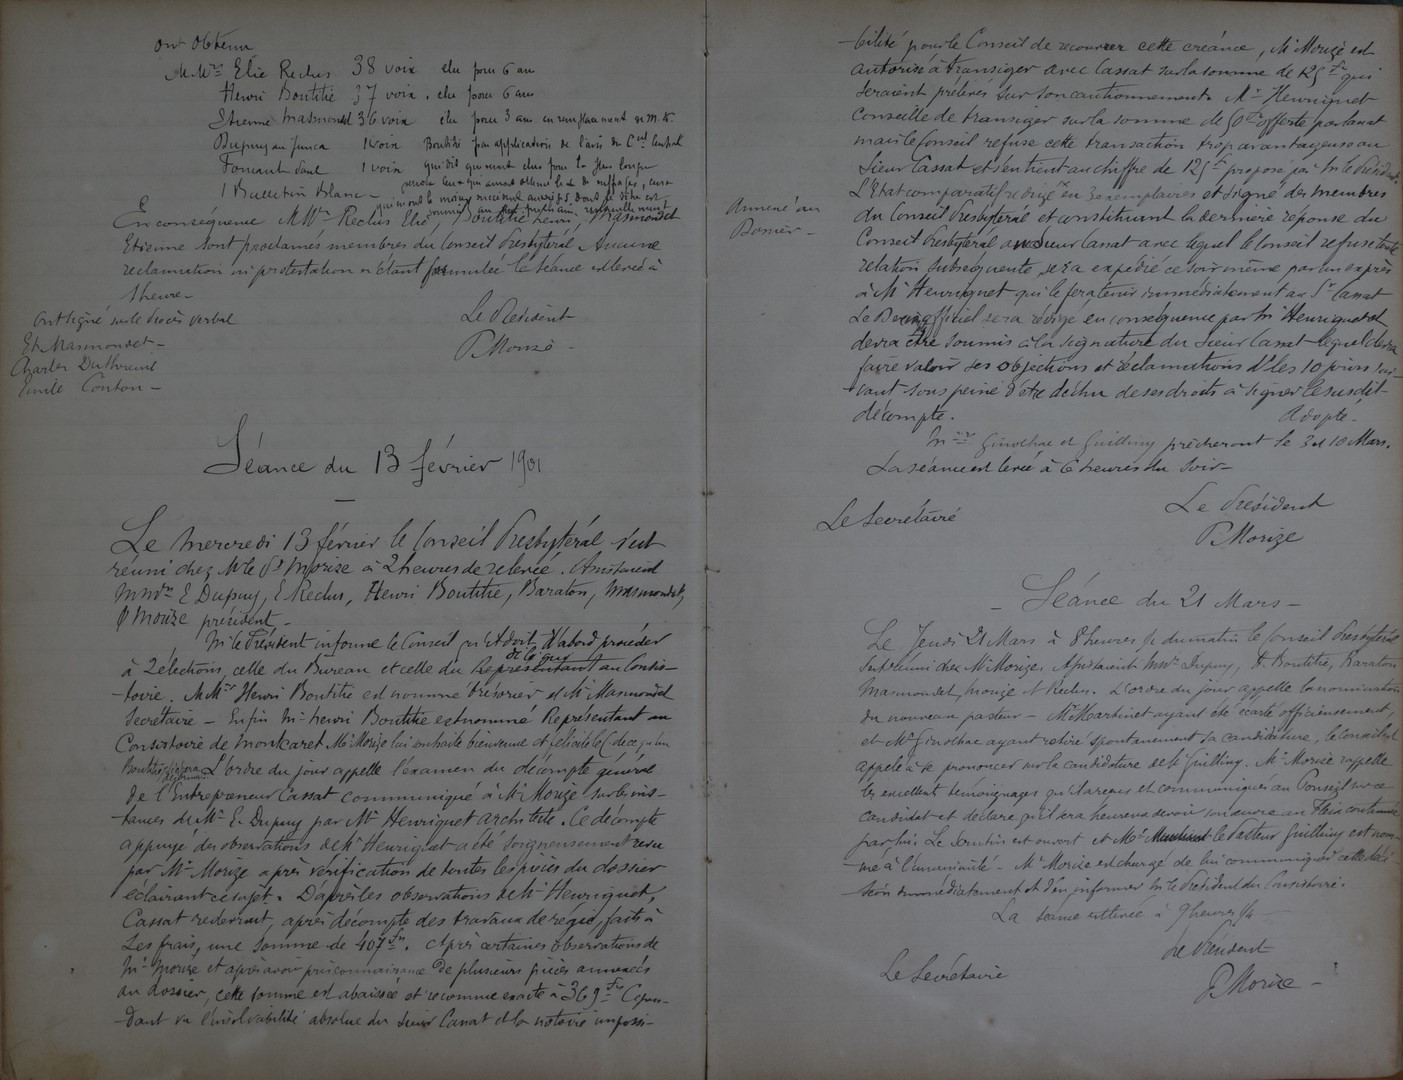 ont obtenu
M.Mrs Elie Reclus 38 voix elu pour 6 an
Henri Boutitie 37 voix. elu pour 6 ans
Etienne Masmondet 36 voix élu pour 3 ans en remplacement de M. H.
Dupuy 1 voix Boutitie par application de l'avis du Cel Central
1 voix qui dit
1 Bulletin Blanc
En conséquence MMrs Reclus Elie, Boutitie Henri, Masmondet
Etienne sont proclamés membres du Conseil Presbytéral Aucune
reclamation ni protestation n'étant formulée la séance est levée à
1 heure –
Ont signé sur le Procès verbal
Et. Masmondet –
Charles Duthreuil
Emile Couton –
Le Président
P Morize
Séance du 13 février 1901
Le Mercredi 13 février le Conseil Presbytéral s'est
réuni chez Mr le Pr Morize à 2 heures de relevée. Assistaient
MMrs E Dupuy, E Reclus, Henri Boutitie, Baraton, Masmondet,
P Morize président –
Mr le Président informe le Conseil qu'il doit d'abord procéder
à 2 élections, celle du Bureau et celle du Représentant délégué au Consis-
toire. MMrs Henri Boutitie est nommé trésorier et Mr Masmondet
Secrétaire – Enfin Mr henri Boutitie est nommé Représentant au
Consistoire de Montcaret. Mr Morize lui souhaite bienvenue et félicite le Cl de ce qu'un
Boutitie L'ordre du jour appelle l'examen du décompte général
de l'Entrepreneur Cassat communiqué à Mr Morize sur les ins-
tances de Mr E. Dupuy par Mr Henriquet architecte. Ce décompte
appuyé des observations de Mr Henriquet a été soigneusement revu
par Mr Morize après vérification de toutes les pièces du dossier
éclairant ce sujet. D'après les observations de Mr Henriquet,
Cassat redevrait, après décompte des travaux de régie, faits à
ses frais, une somme de 407 frs. Après certaines observations de
Mr Morize et après avoir pris connaissance de plusieurs pièces annexées
au dossier, cette somme est abaissée et reconnue exacte à 369 frs Cepen-
dant vu l'insolvabilité absolue du sieur Cassat et la notoire impossi-
bilité pour le Conseil de recouvrer cette créance, Mr Morize est
autorisé à transiger avec Cassat sur la somme de 125 fr qui
seraient prélevés sur son cautionnement. Mr Henriquet
conseille de transiger sur la somme de 50 fr offerte par Cassat
mais le Conseil refuse cette transaction trop avantageuse au
Sieur Cassat et s'en tient au chiffre de 125 f proposé par Mr le Président.
L'Etat comparatif rédigé en 3 exemplaires et signé des membres
du Conseil Presbytéral et constituant la dernière réponse du
Conseil Presbytéral au Sieur Cassat avec lequel le Conseil refuse toute
relation subséquente, sera expédié ce soir même par un exprès
à Mr Henriquet qui le fera tenir immédiatement au Sr Cassat
Annexé au
Dossier –
Le officiel sera rédigé en conséquence par Mr Henriquet et
devra être soumis à la signature du Sieur Cassat lequel devra
faire valoir ses objections et réclamations ds les 10 jours sui-
vant sous peine d'être déchu de ses droits à signer le susdit
décompte. Adopté.
Mrs Ginolhac et Guilliny prêcheront le 3 et 10 Mars.
La séance est levée à 6 heures du soir –
Le Secrétaire
Le Président
P. Morize
– Séance du 21 Mars –
Le Jeudi 21 Mars à 8 heures 1/2 du matin le Conseil Presbytéral
s'est réuni chez Mr Morize. Assistaient MMrs Dupuy, H. Boutitie, Baraton
Masmondet, Morize et Reclus. L'ordre du jour appelle la nomination
du nouveau pasteur – Mr Martinet ayant été écarté officieusement,
et Mr Ginolhac ayant retiré spontanément sa candidature, le Conseil est
appelé à se prononcer sur la candidature de Mr Guilliny. Mr Morize rappelle
les excellents témoignages qu'il a reçus et communiqués au Conseil sur ce
candidat et déclare qu'il sera heureux de voir son œuvre au Fleix continuée
par lui. Le Scrutin est ouvert et Mr le Pasteur Guilliny est nom-
mé à l'unanimité. Mr Morize est chargé de lui communiquer cette déci-
sion immédiatement et d'en informer Mr le Président du Consistoire.
La séance est levée à 9 heures 1/4 –
Le Secrétaire
Le Président
P. Morize –